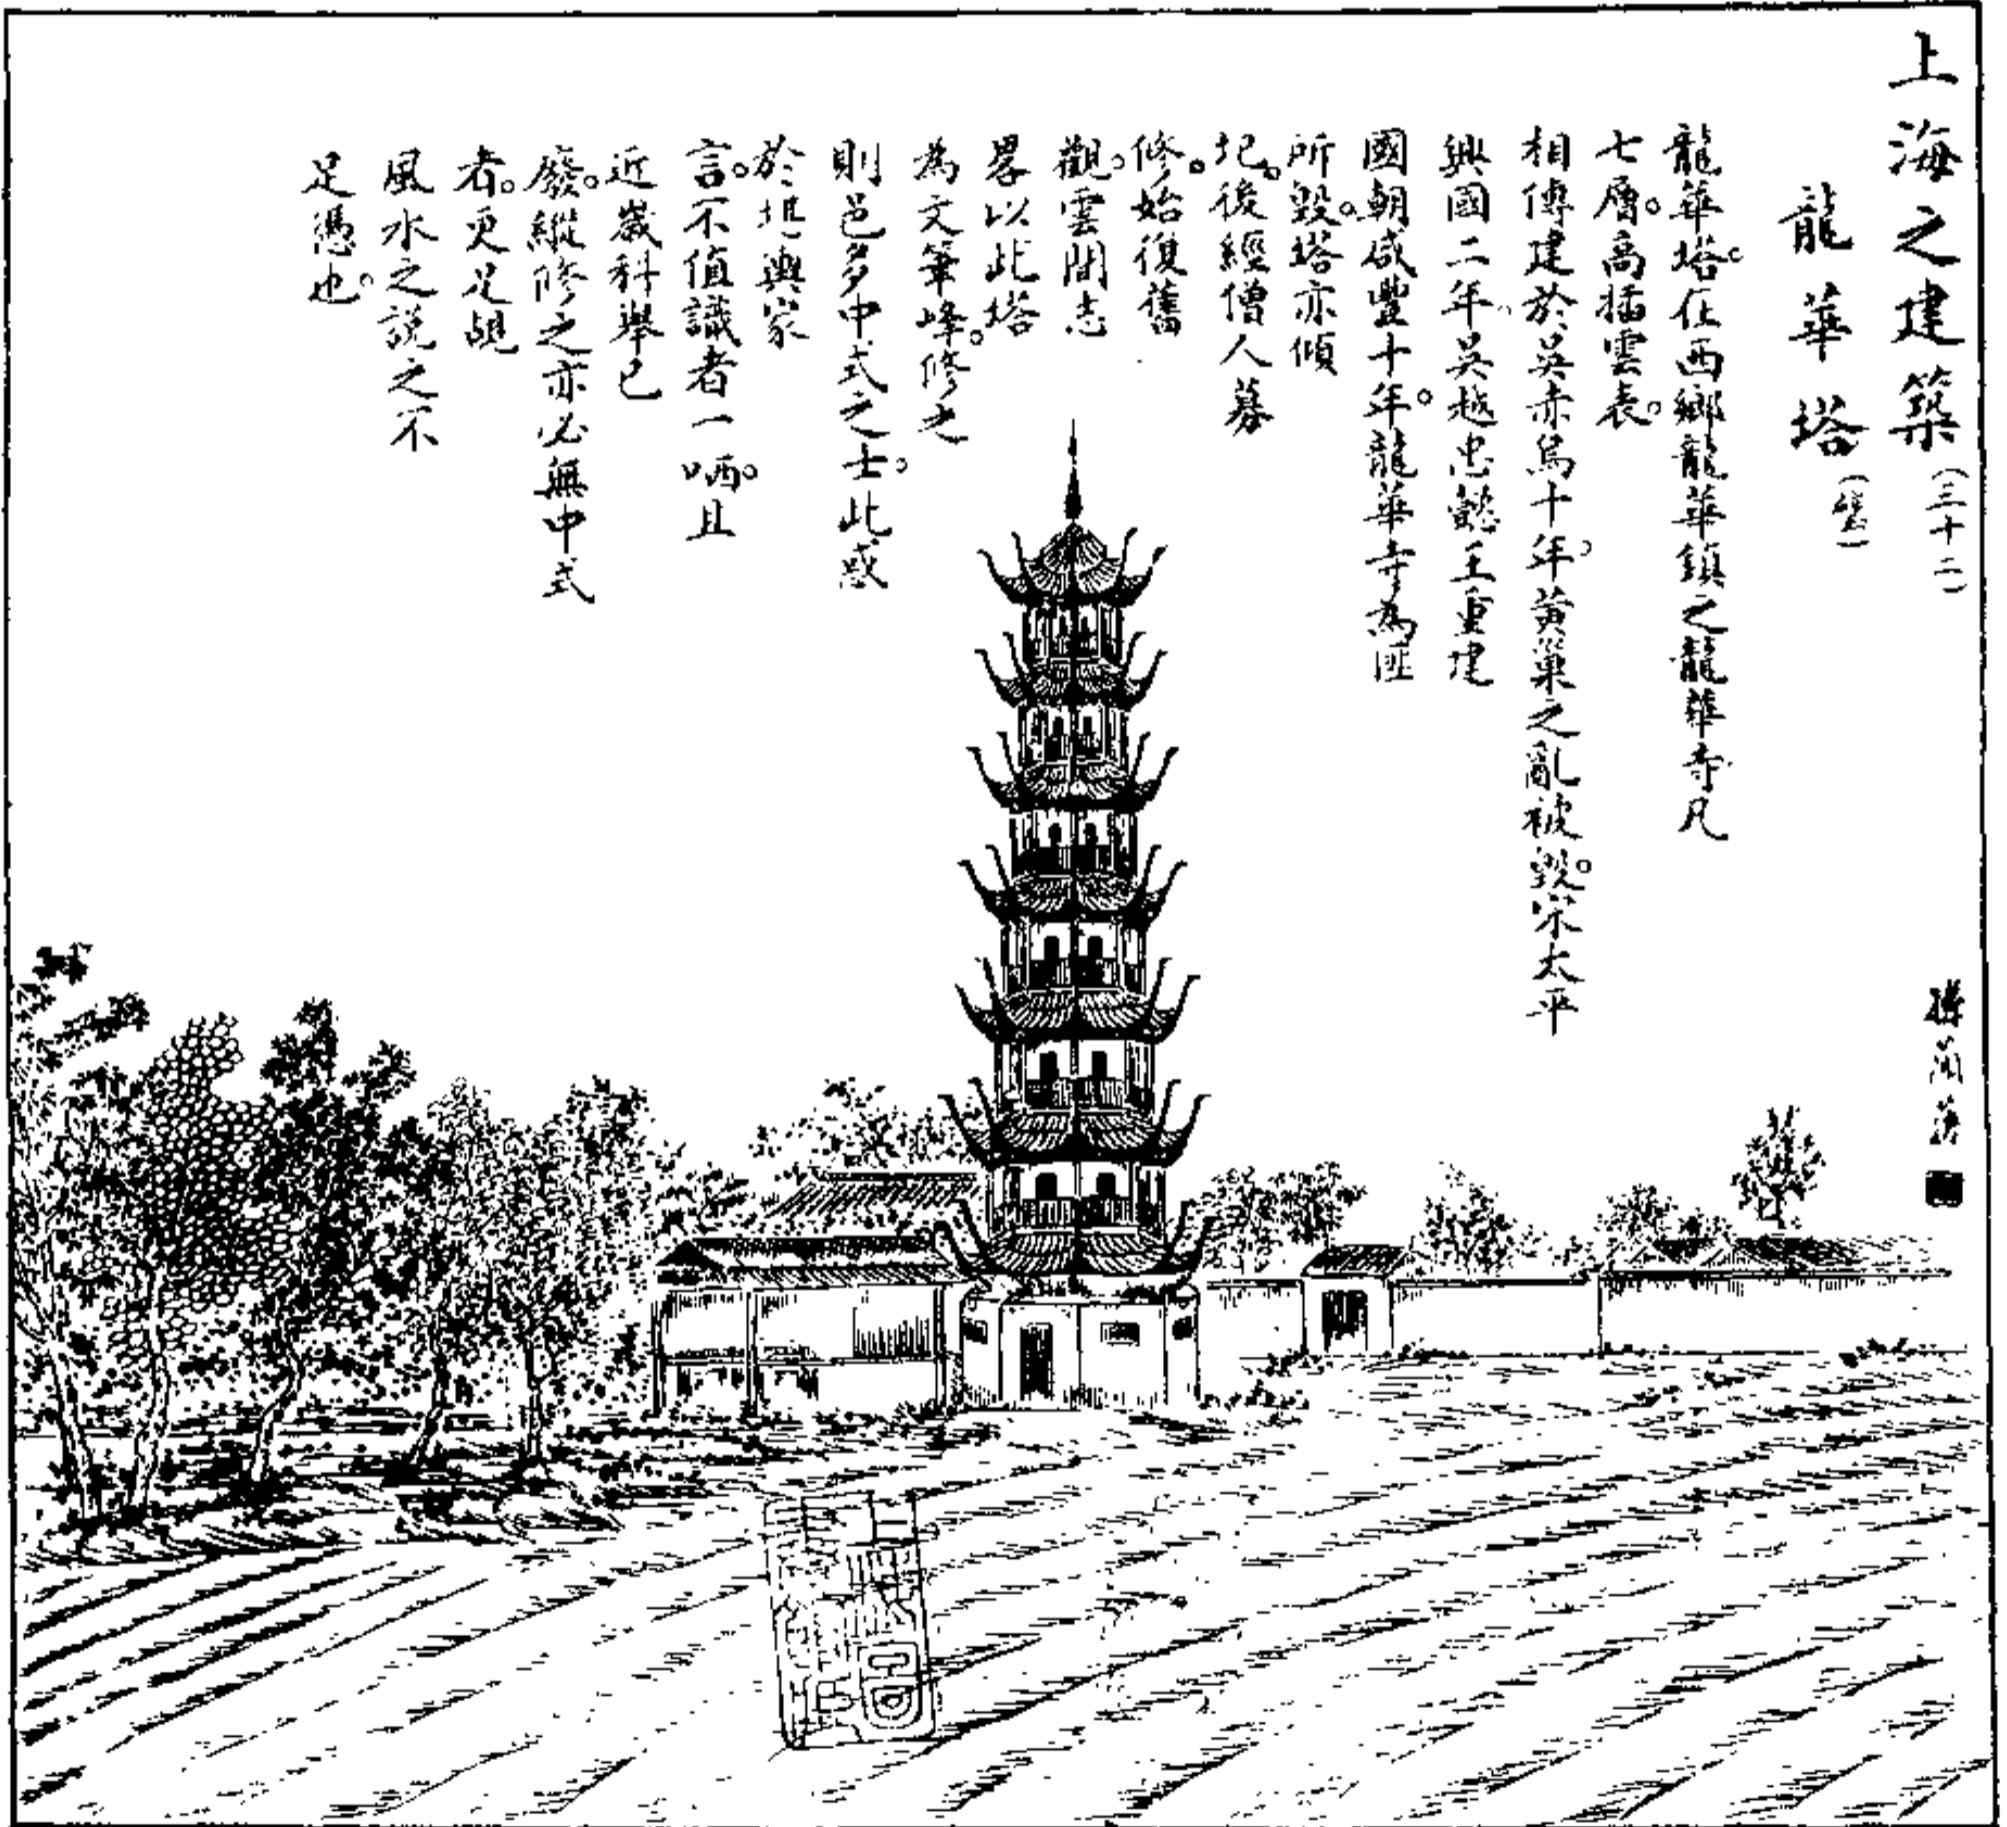 上海之建築（三十二）
龍華塔
龍華塔。在西鄉龍華鎮之龍華寺凡
七層。高插雲表。
相傳建於吳赤烏十年。黃巢之亂被毀。宋太平
興國二年。吳越忠懿王重建
國朝咸豐十年。龍華寺為匪
所毀。塔亦傾
圮。後經僧人募
修。始復舊
觀。雲間志
畧以此塔
為文筆峰。修之
則邑多中式之士。此惑
於堪輿家
言。不值識者一哂。且
近歲科舉已
廢。縱修之亦必無中式
者。更足覘
風水之說之不
足憑也。